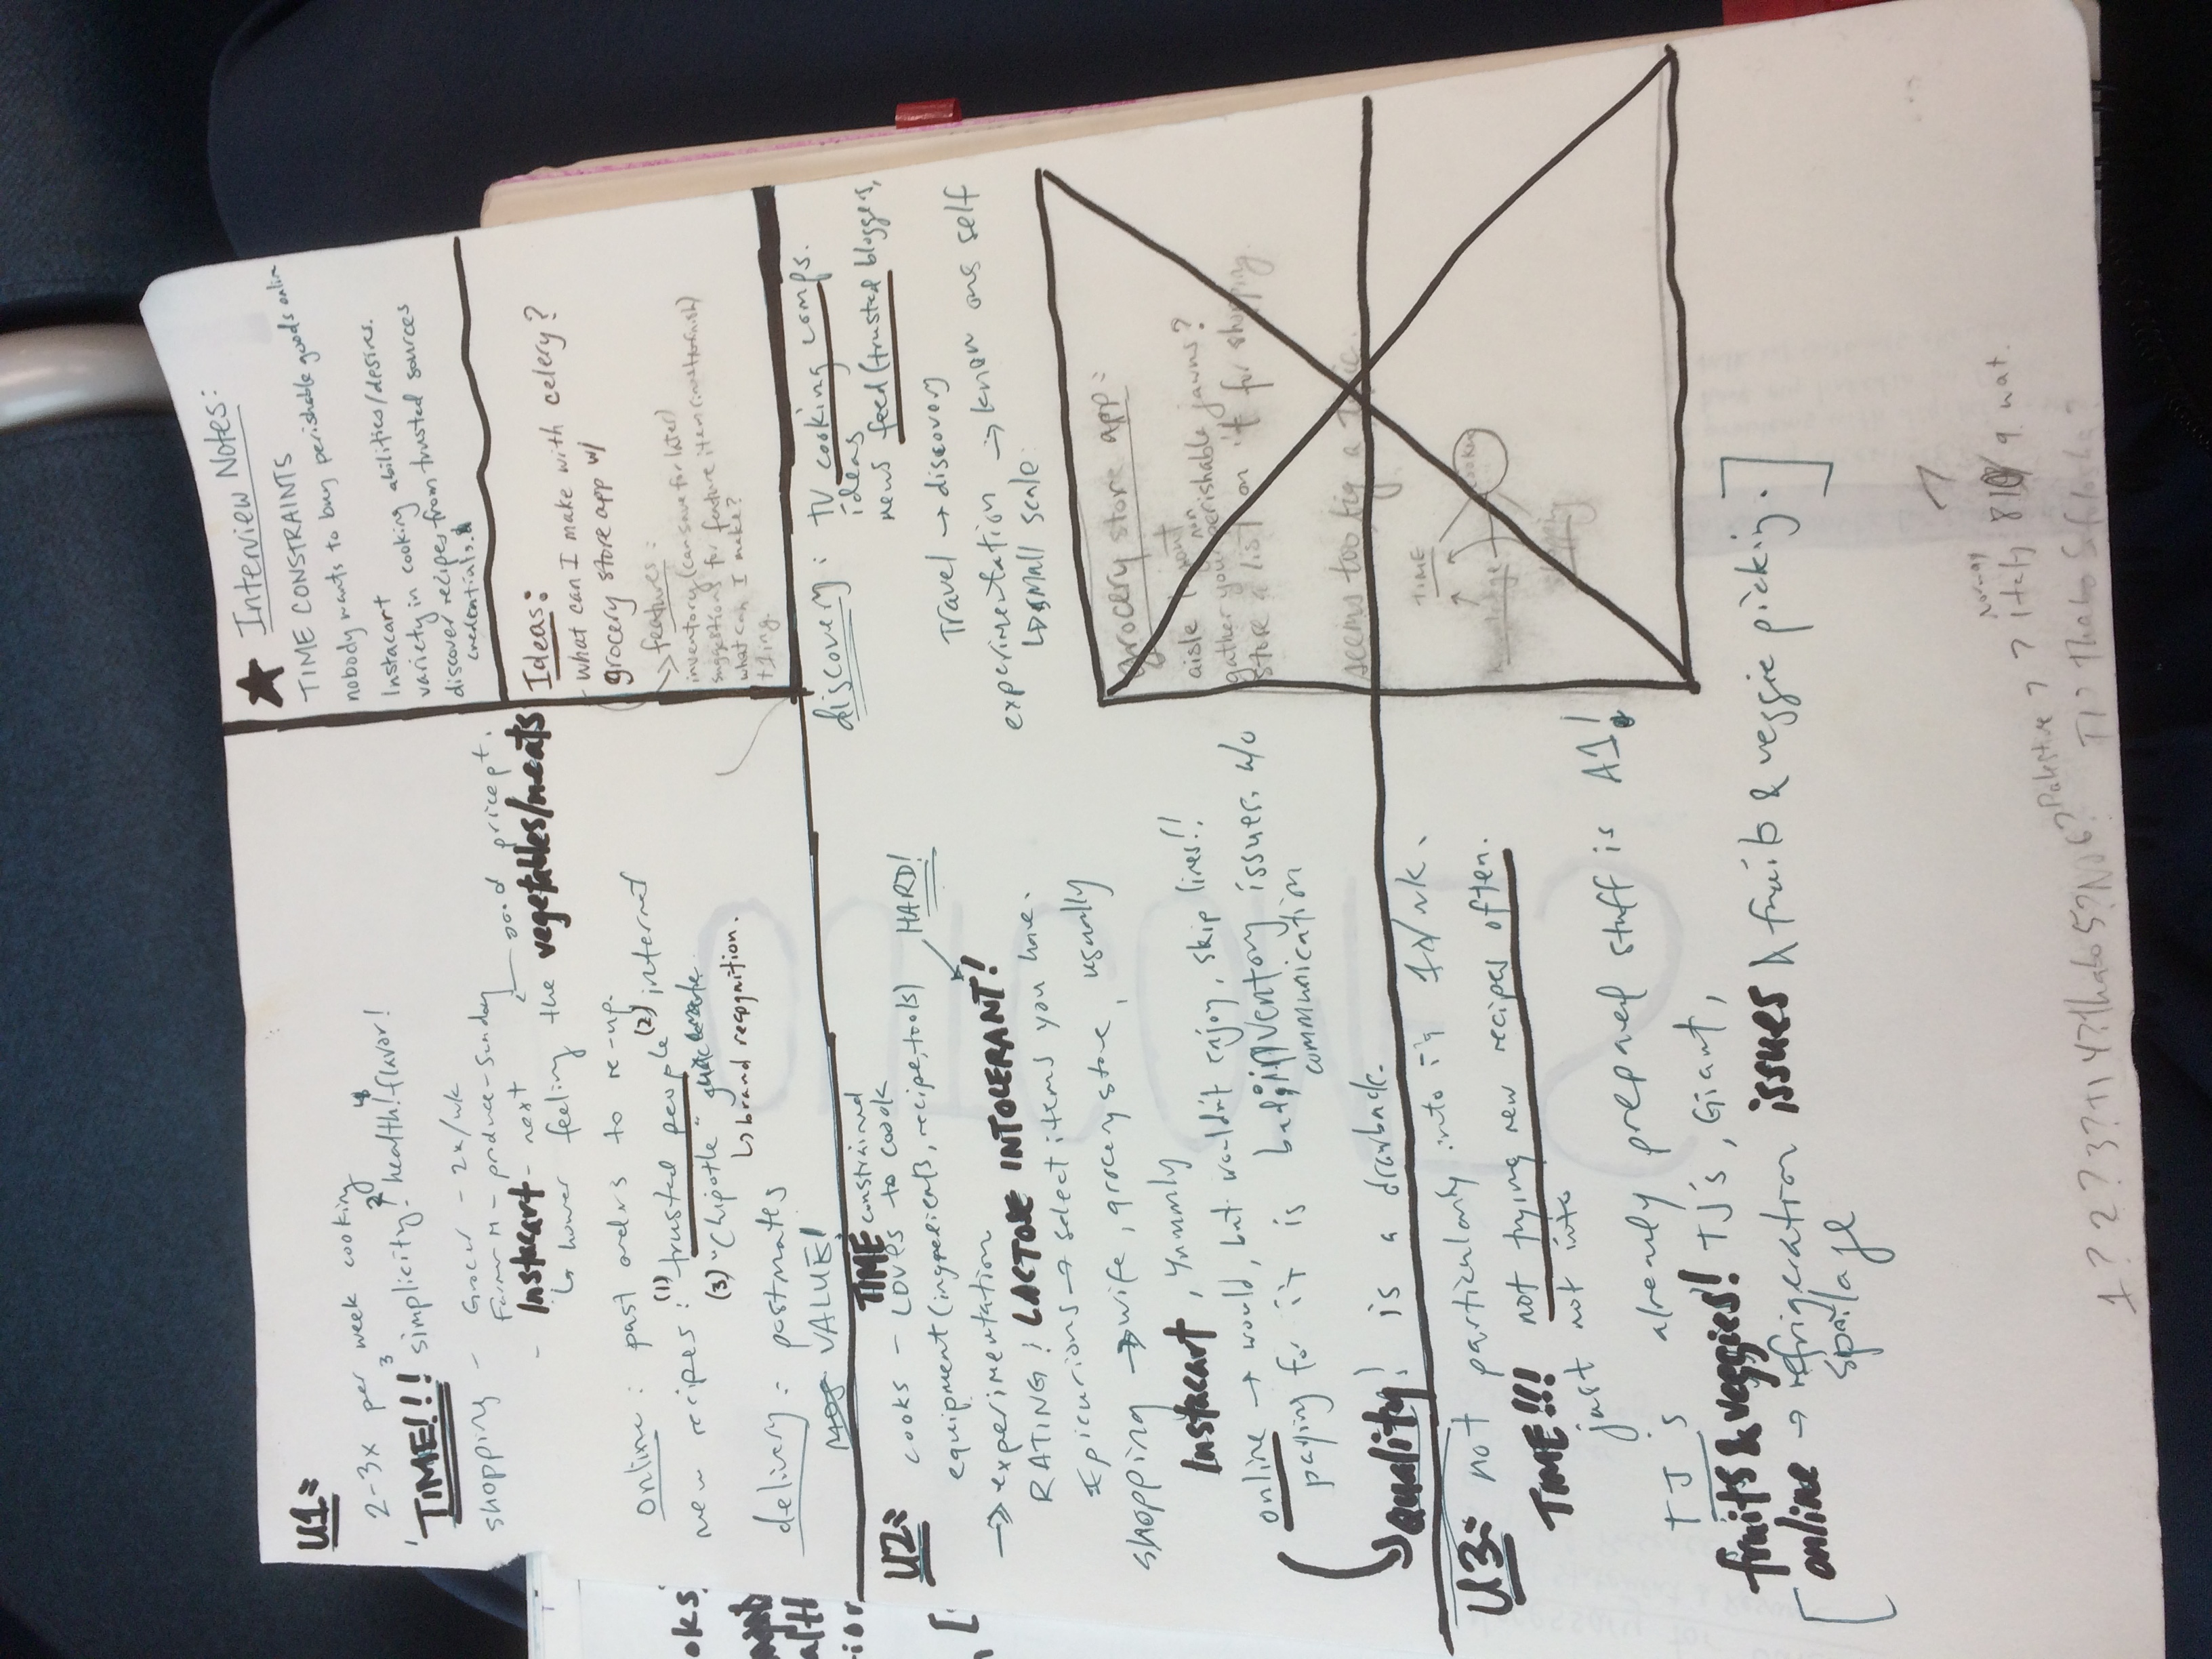 U1:
2-3x per week cooking
1 TIME!!! 3 simplicity! 2 health! 4 flavor!
shopping - Grocer - 2x/wk
Farmer M - produce - Sunday
- Instacart - next ← good price pt.
↳ however feeling the vegetables/meats
online: past orders to re-up.
new recipes: (1) trusted people (2) internet
(3) "Chipotle" guacamole
↳ brand recognition.
delivery: postmates
VALUE!
★ Interview Notes:
TIME CONSTRAINTS
nobody wants to buy perishable goods onlin
Instacart
variety in cooking abilities/desires.
discover recipes from trusted sources
credentials.
Ideas:
- what can I make with celery?
grocery store app w/
features:
inventory (can save for later)
suggestions for feature item
what can I make?
t1ing.
U2: TIME constrained
cooks - LOVES to coook
equipment (ingredients, recipe, tools) HARD!
→ experimentation
RATING! LACTOSE INTOLERANT!
Epicurions → select items you have.
shopping → wife, grocery store, usually
Instacart, Yummly
online → would, but wouldn't enjoy, skip lines!!
paying for it is bad, inventory issues. w/o
communication
Quality! is a drawback.
discovery: TV cooking comps.
ideas
news feed (trusted bloggers,
Travel → discovery
experimentation → know ones self
↳ small scale
grocery store app:
aisle
gather your non perishable jawns?
store a list on it for shopping.
seems too big a topic.
TIME
knowledge cooking
shopping
U3: not particularly into it 1x/wk.
TIME!!! not trying new recipes often.
just not into
TJ's already prepared stuff is A1!
fruits & veggies! TJ's, Giant,
[online → refrigeration issues & fruits & veggie picking.]
spoilage
7
Norway
1? 2? 3? T1 4? Thabo 5? No 6? Palestine 7 ? Italy 8 9 wat.
T1? Thabo Sefolosha?
oks
alth
ior
[